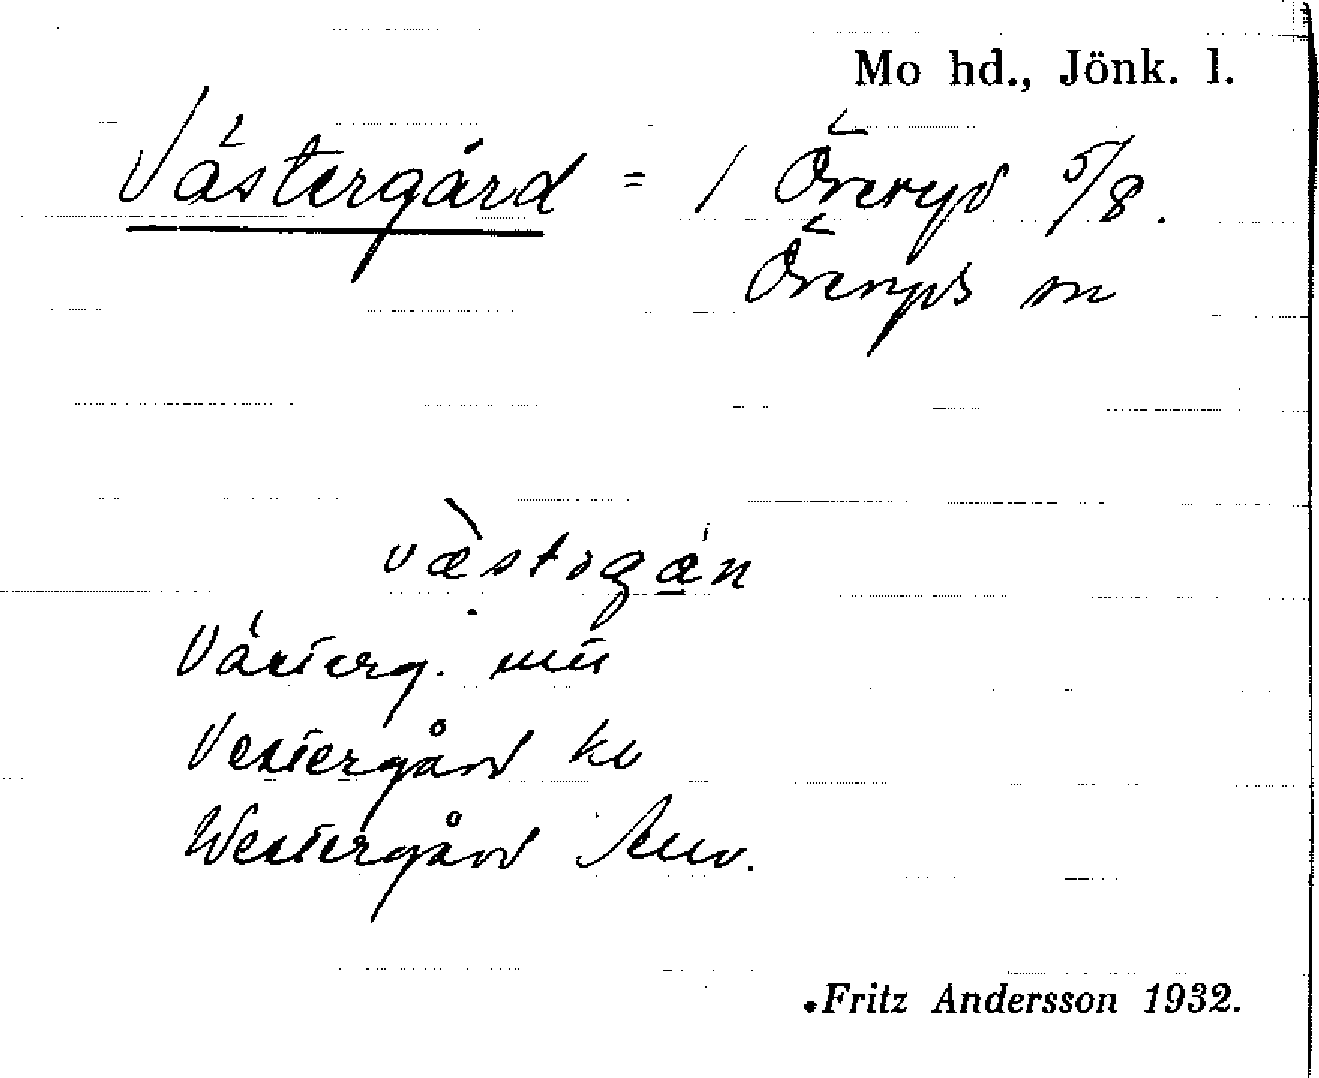 Mo hd., Jönk. l.
Västergård = 1 Öreryd 5/8.
Öreryds sn
Västerg.
Vestergård
Westergård
.Fritz Andersson 1932.